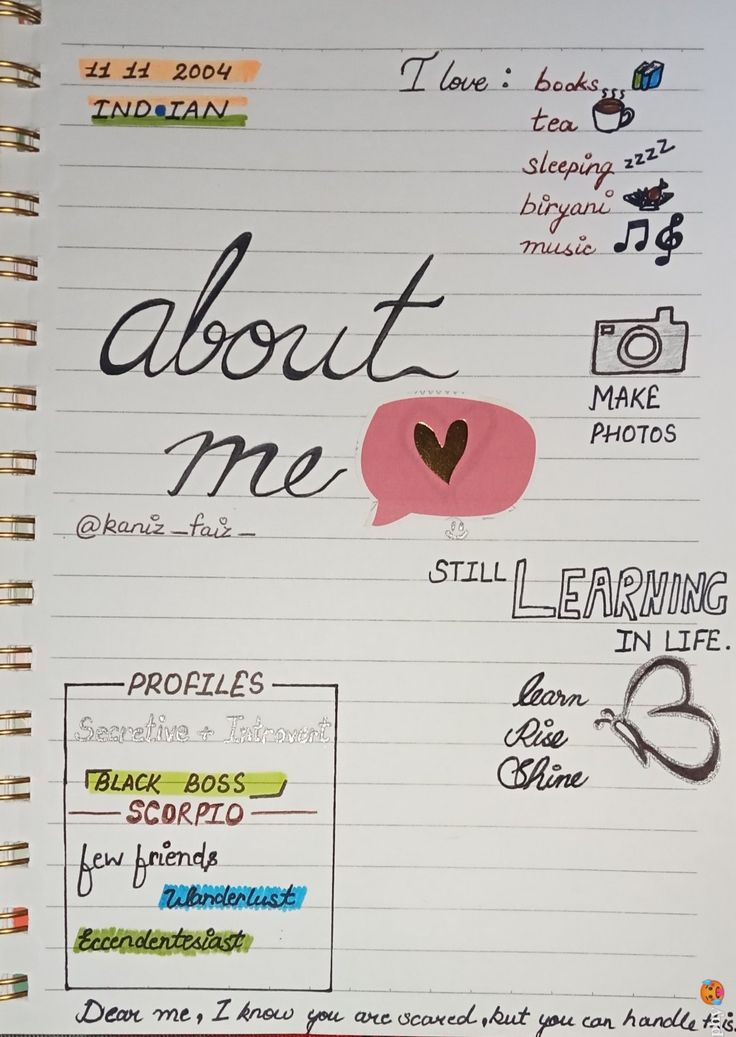 11 11 2004
INDIAN
I love : books
tea
sleeping zzzz
biryani
music
about
me
MAKE
PHOTOS
@kaniz_faiz_
STILL LEARNING
IN LIFE.
learn
Rise
Shine
PROFILES
Secretive + Introvert
BLACK BOSS
SCORPIO
few friends
Wanderlust
Eccendentesiast
Dear me, I know you are scared, but you can handle this.